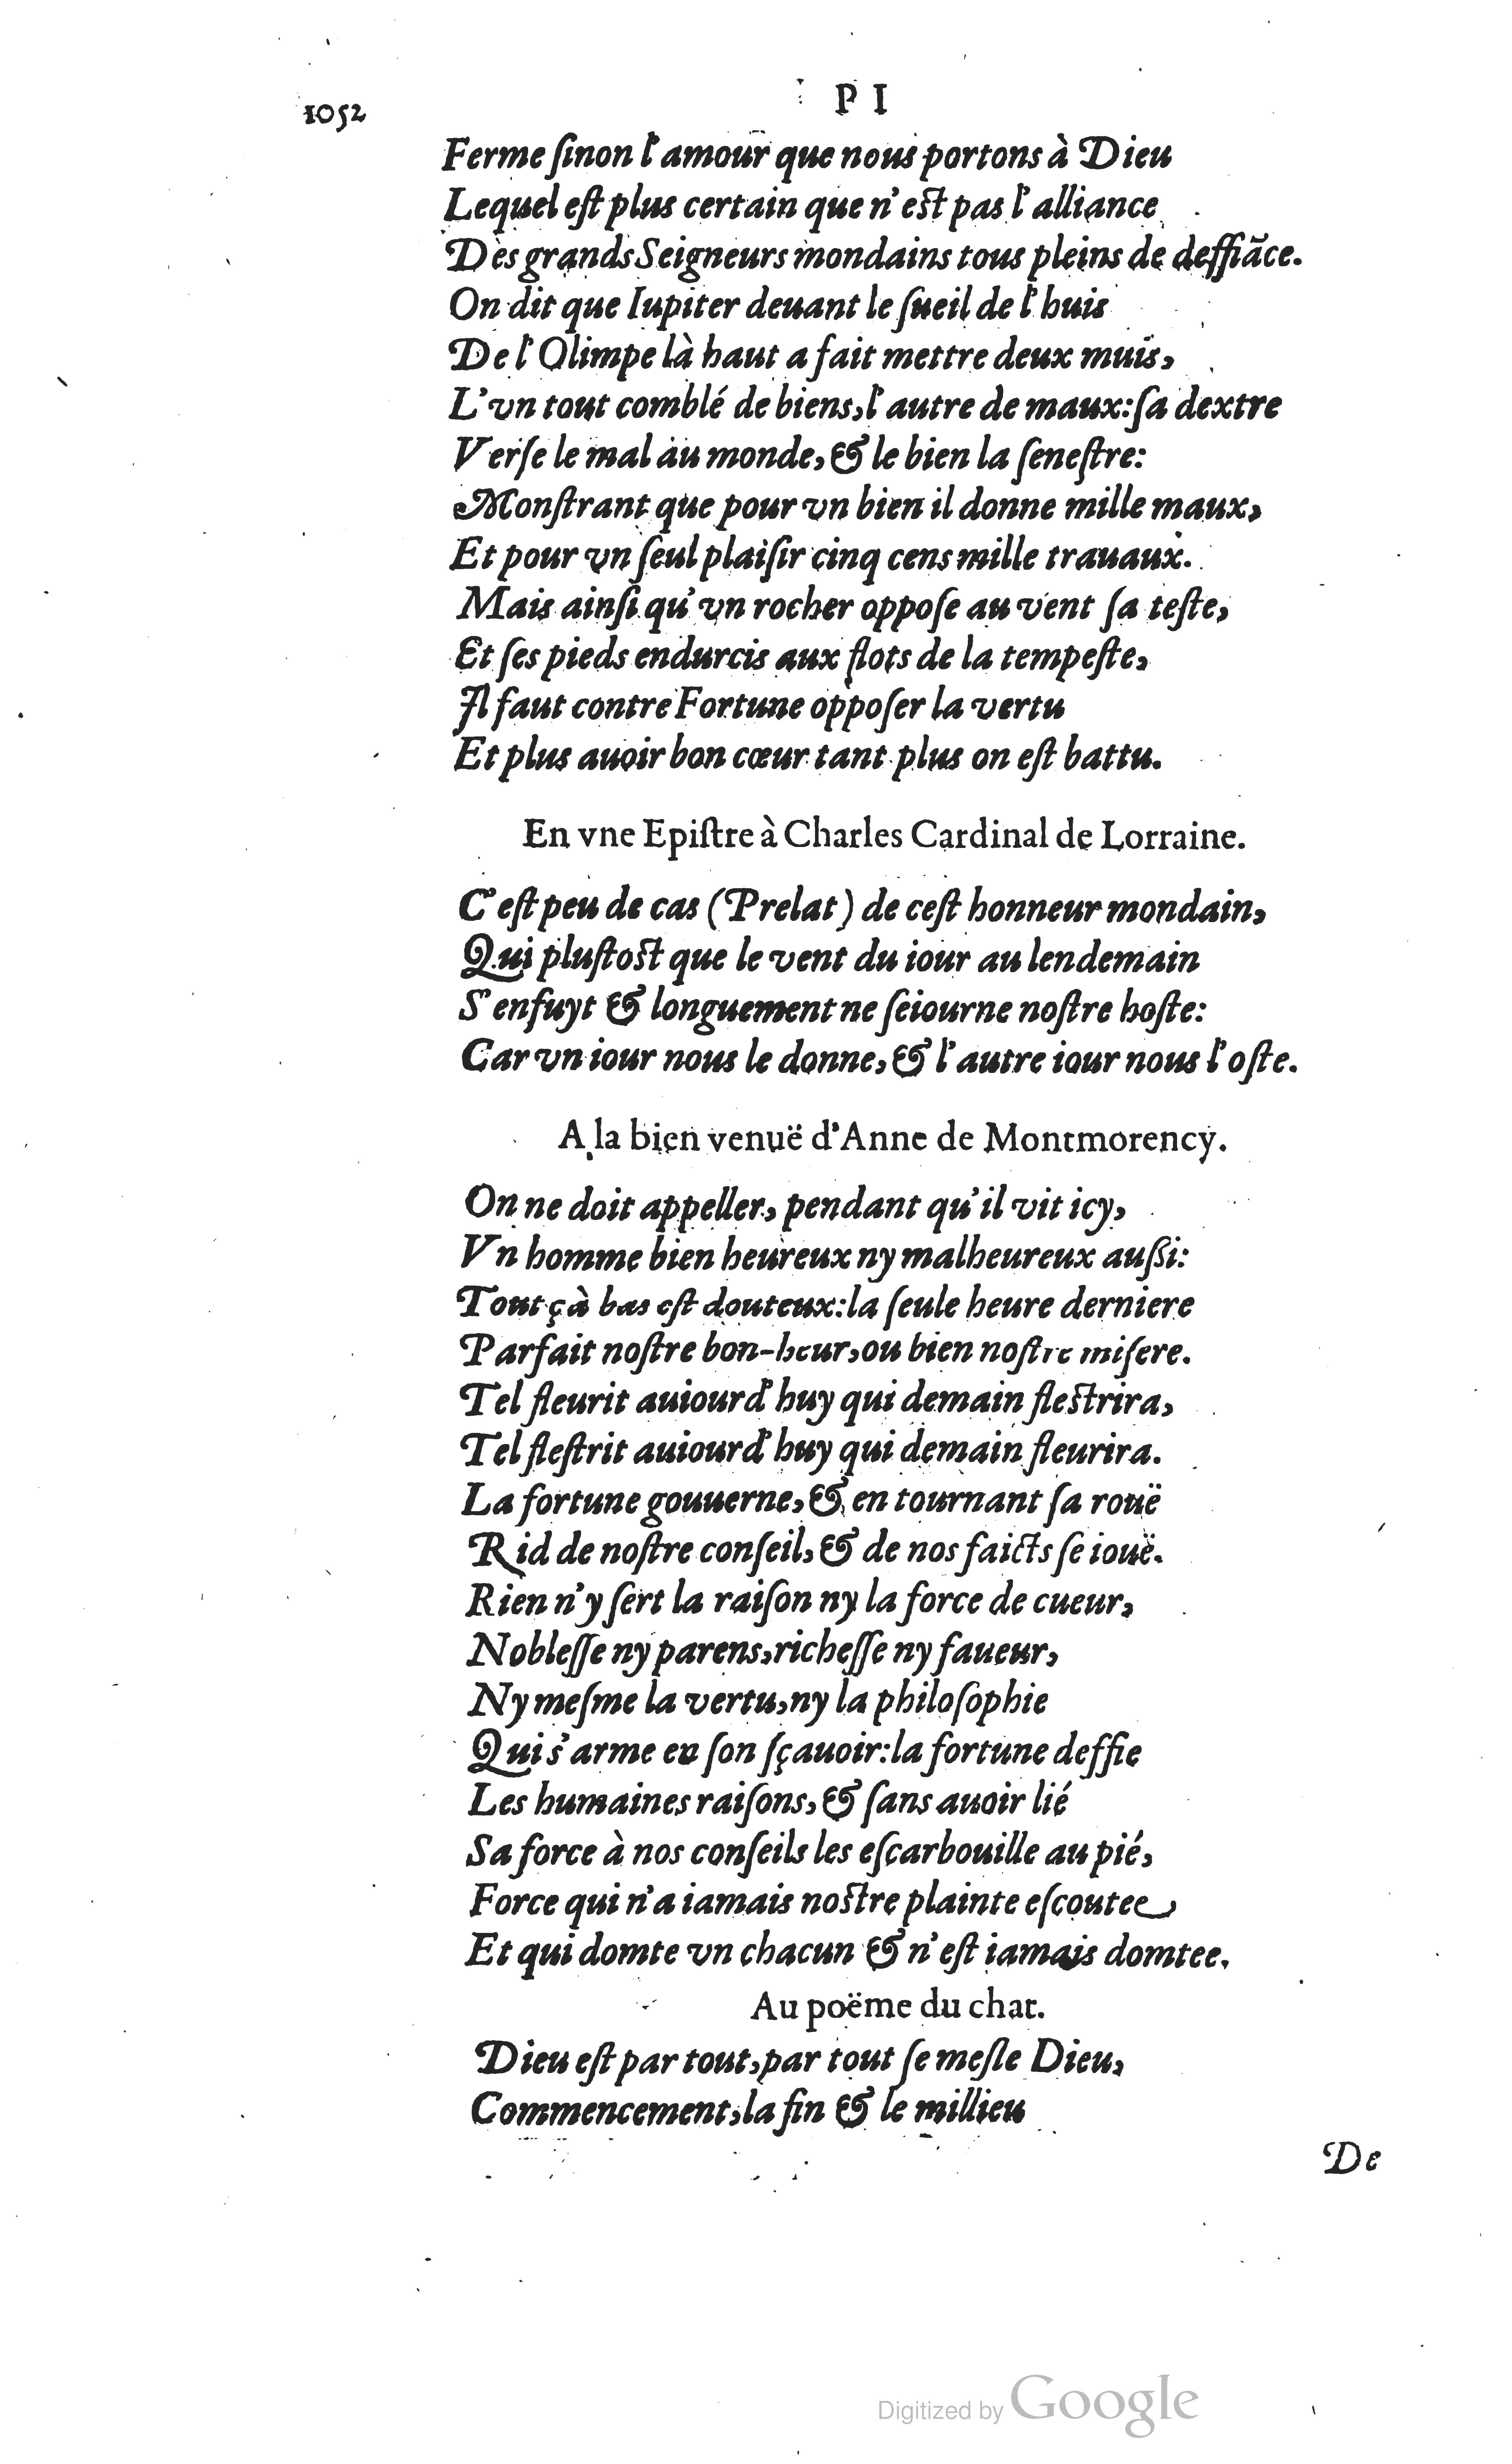 1052
P I
Ferme ſinon l'amour que nous portons à Dieu
Lequel eſt plus certain que n'eſt pas l'alliance
Des grands Seigneurs mondains tous pleins de deffiãce.
On dit que Iupiter deuant le ſueil de l'huis
De l'Olimpe là haut a fait mettre deux muis,
L'vn tout comblé de biens, l'autre de maux: ſa dextre
Verſe le mal au monde, & le bien la ſeneſtre:
Monſtrant que pour vn bien il donne mille maux,
Et pour vn ſeul plaiſir cinq cens mille trauaux.
Mais ainſi qu'vn rocher oppoſe au vent ſa teſte,
Et ſes pieds endurcis aux flots de la tempeſte,
Il faut contre Fortune oppoſer la vertu
Et plus auoir bon cœur tant plus on eſt battu.
En vne Epiſtre à Charles Cardinal de Lorraine.
C'eſt peu de cas (Prelat) de ceſt honneur mondain,
Qui pluſtoſt que le vent du iour au lendemain
S'enfuyt & longuement ne ſeiourne noſtre hoſte:
Car vn iour nous le donne, & l'autre iour nous l'oſte.
A la bien venuë d'Anne de Montmorency.
On ne doit appeller, pendant qu'il vit icy,
Vn homme bien heureux ny malheureux auſsi:
Tout çà bas eſt douteux: la ſeule heure derniere
Parfait noſtre bon-heur, ou bien noſtre miſere.
Tel fleurit auiourd'huy qui demain fleſtrira,
Tel fleſtrit auiourd'huy qui demain fleurira.
La fortune gouuerne, & en tournant ſa rouë
Rid de noſtre conſeil, & de nos faicts ſe iouë.
Rien n'y ſert la raiſon ny la force de cueur,
Nobleſſe ny parens, richeſſe ny faueur,
Ny meſme la vertu, ny la philoſophie
Qui s'arme en ſon ſçauoir: la fortune deffie
Les humaines raiſons, & ſans auoir lié
Sa force à nos conſeils les eſcarbouille au pié,
Force qui n'a iamais noſtre plainte eſcoutee,
Et qui domte vn chacun & n'eſt iamais domtee.
Au poëme du chat.
Dieu eſt par tout, par tout ſe meſle Dieu,
Commencement, la fin & le millieu
De
Digitized by Google